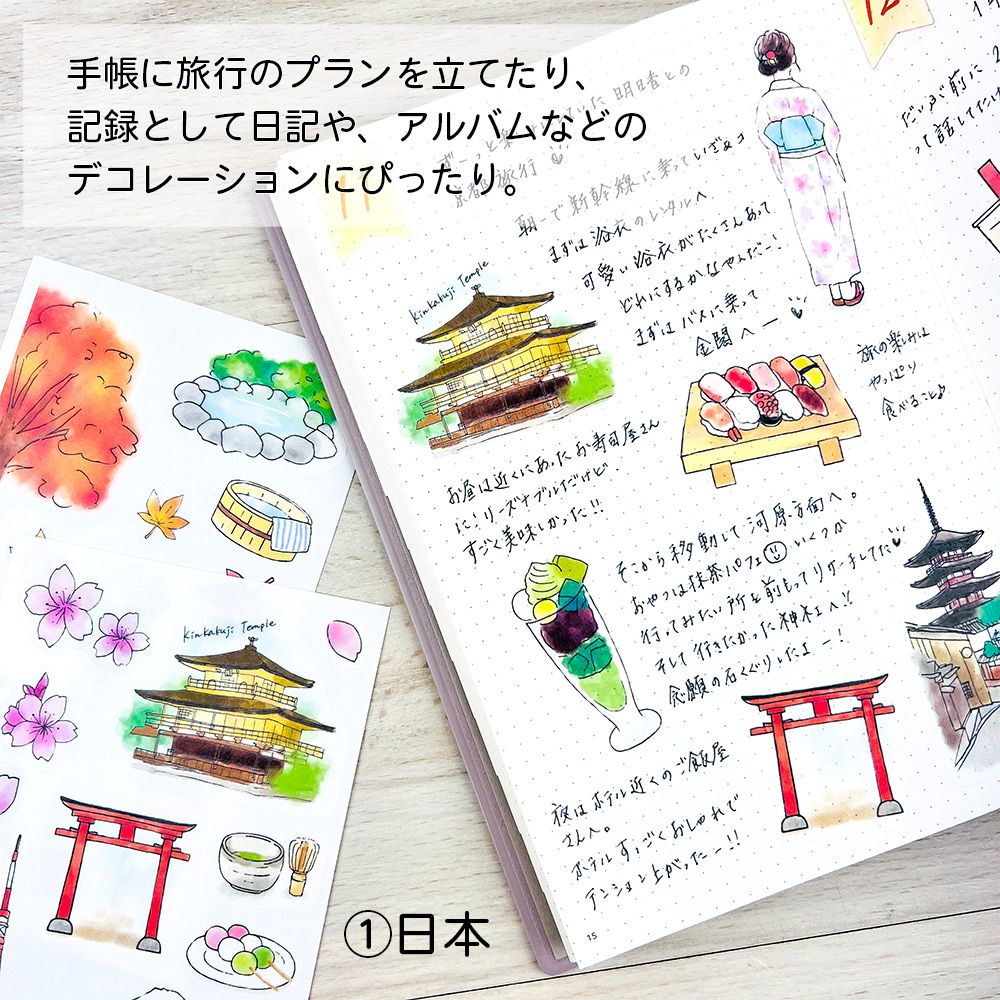 手帳に旅行のプランを立てたり、
記録として日記や、アルバムなどの
デコレーションにぴったり。
11
ずーっと楽 いた明日香との
京都旅行
朝一で新幹線に乗っていざゆコ
まずは浴衣のレンタルへ
可愛い浴衣がたくさんあって
どれにするかなやんだー!
まずはバスに乗って
金閣へー
Kinkakuji Temple
旅の楽しみは
やっぱり
食べること♪
お昼は近くにあったお寿司屋さん
に!リーズナブルだけど
すごく美味しかった!!
そこから移動して河原方面へ。
おやつは抹茶パフェ いくつか
行ってみたい所を前もってリサーチしてた
そして行きたかった神社へ!!
念願の石くぐりしたよー!
夜はホテル近くのご飯屋
さんへ。
ホテルすっごくおしゃれで
テンション上がったー!!
15
12
だいぶ前に
って話してたけ
Kinkakuji Temple
①日本